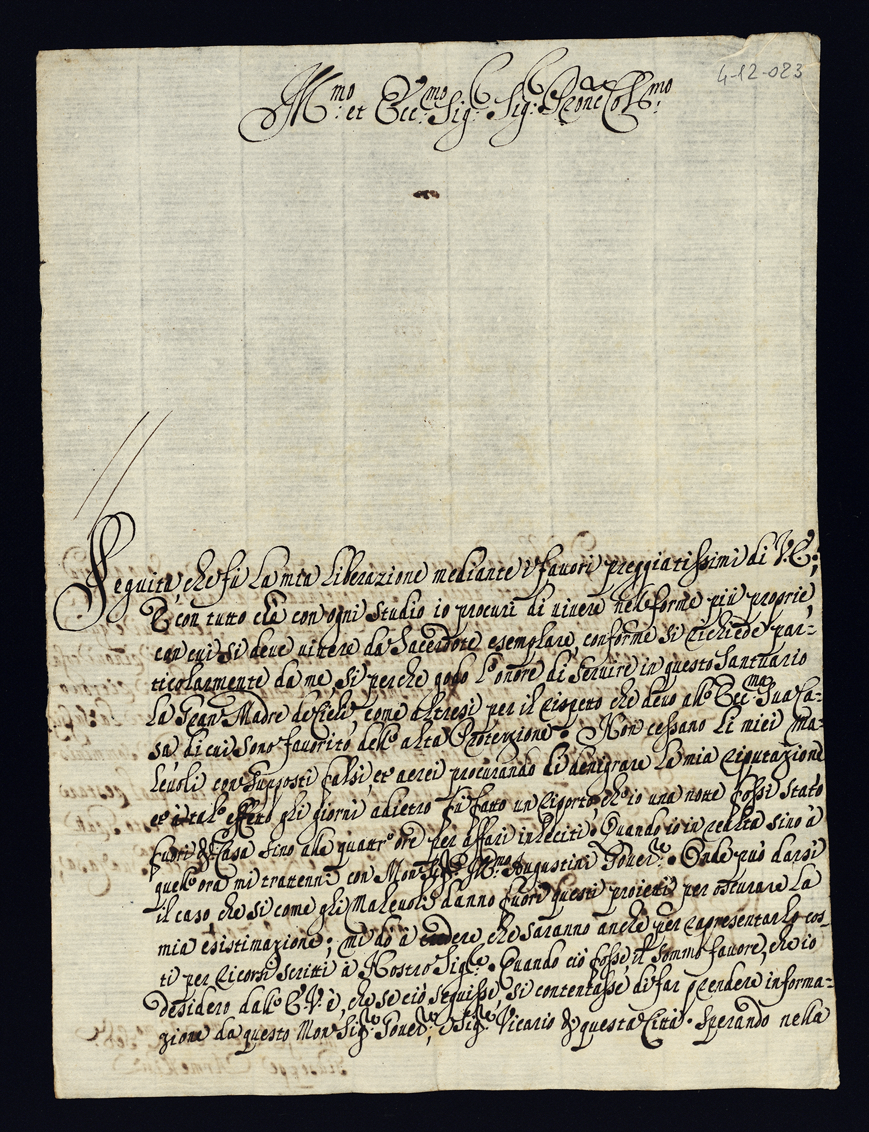 4-12-023
Ill.mo et Ecc.mo Sig.r Sig.r Prone Col.mo
Seguita, che fù la mia liberazione mediante i favori preggiatissimi di V.E.;
E con tutto che con ogni studio io procuri di vivere nelle forme più proprie,
con cui si deve vivere da Sacerdote esemplare, conforme si richiede par=
ticolarmente da me, si perche godo l'onore di servire in questo Santuario
la Gran Madre de fieli, come altresi per il rispetto che devo all' Ecc.ma Sua Ca=
sa di cui sono favorito dell' alta Protezione. Non cessano li miei ma=
levoli con supposti falsi, et aerei procurando di denigrare la mia riputazione
et à tal' effetto gli giorni adietro fu fatto un riporto, ch' io una notte fossi stato
fuori di Casa sino alle quattr' ore per affari inleciti. Quando io in realtà sino à
quell' ora mi trattenni con Mon.r Ill.mo Augustini Gover.re. Onde può darsi
il caso che si come gli Malevoli danno fuori questi proietti per oscurare la
mia esistimazione; mi do à credere che saranno anche per rapresentarlo cos=
ti per ricorsi scritti à Nostro Sig.re. Quando ciò fosse, il sommo favore, che io
desidero dall' E.V. è, che se ciò seguisse, si contentasse di far prendere informa=
zione da questo Mon Sig.r Gover.re, e Sig.re Vicario di questa Città. Sperando nella